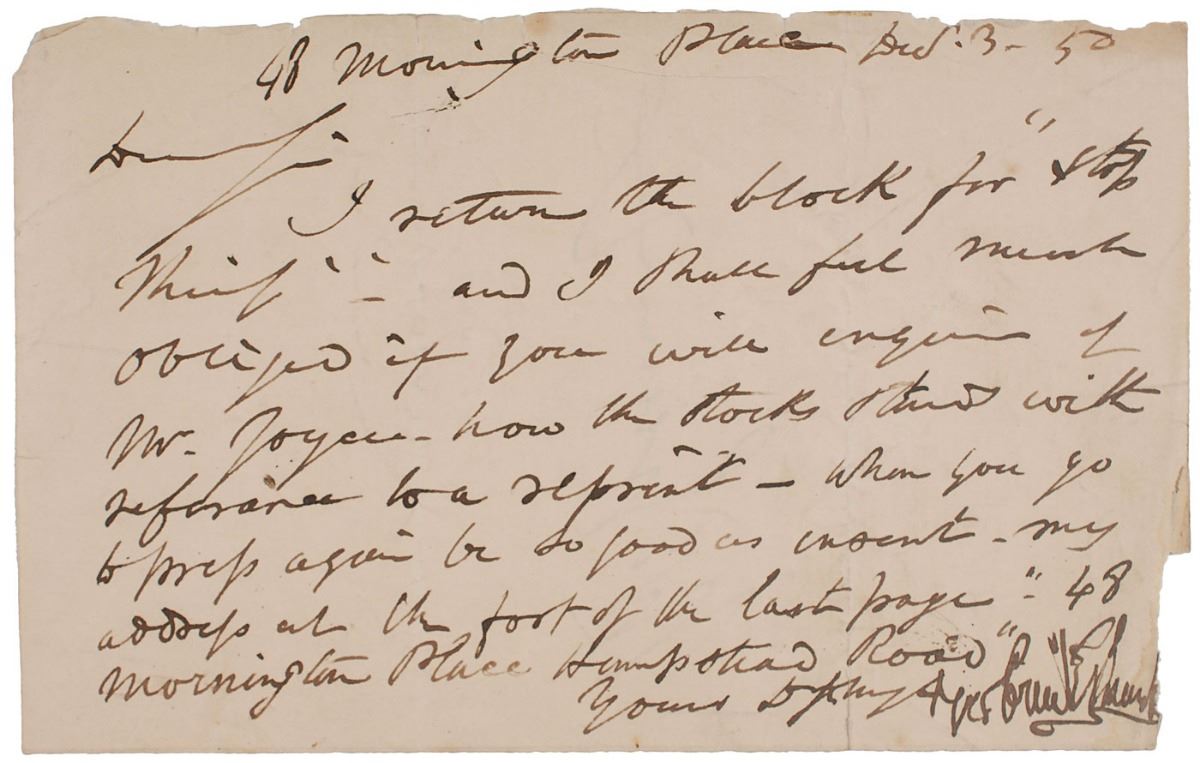 48 Mornington Place Decr. 3 - 50
Dear Sir
I return the block for "Stop
Thief" - and I shall feel much
obliged if you will enquire of
Mr. Joyce - how the stocks stands with
referance to a reprint - when you go
to press again be so good as insert - my
address at the foot of the last page - "48
Mornington Place Hampstead Road"
Yours Geo Cruikshank